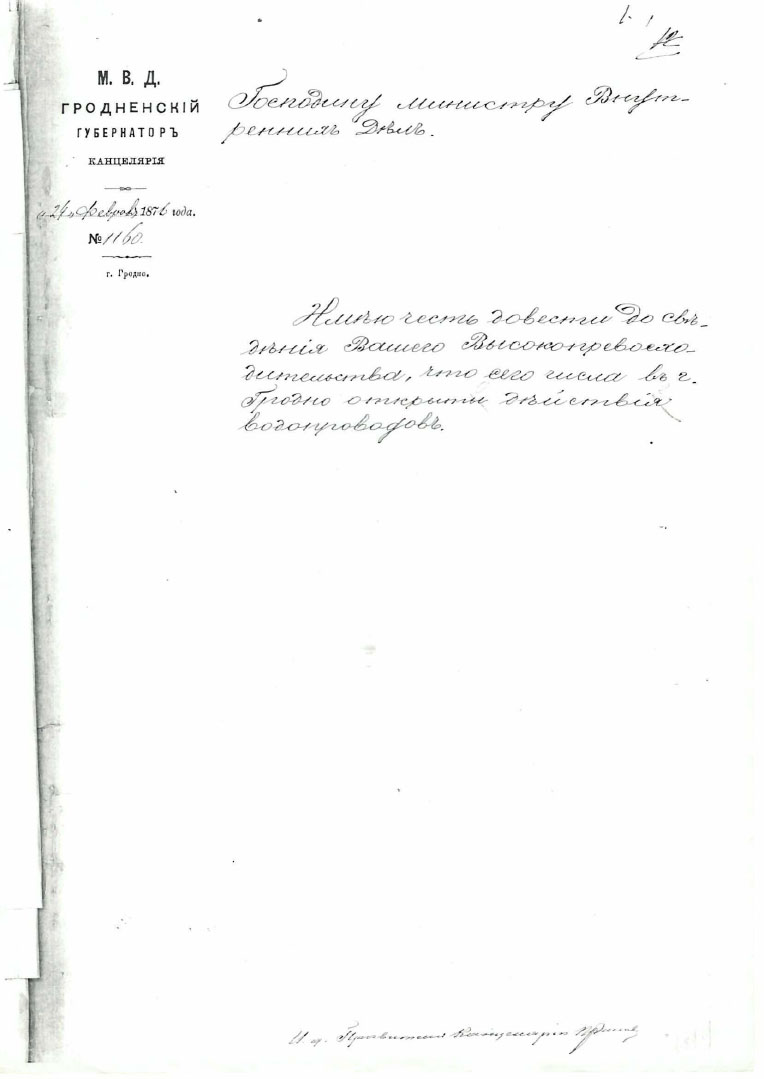 12
М. В. Д.
ГРОДНЕНСКІЙ
ГУБЕРНАТОРЪ
КАНЦЕЛЯРІЯ
„24„ Февраля 1876 года.
№ 1160.
г. Гродно.
Господину Министру Внут-
реннихъ Дѣлъ.
Имѣю честь довести до свѣ-
дѣнія Вашего Высокопревосхо-
дительства, что сего числа въ г.
Гродно открыты дѣйствія
водопроводовъ.
И. д. Правителя Канцеляріи